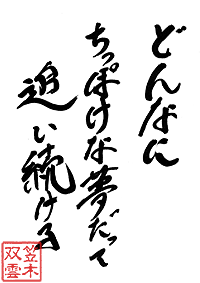 どんなに
ちっぽけな夢だって
追い続ける
笠木
双雲